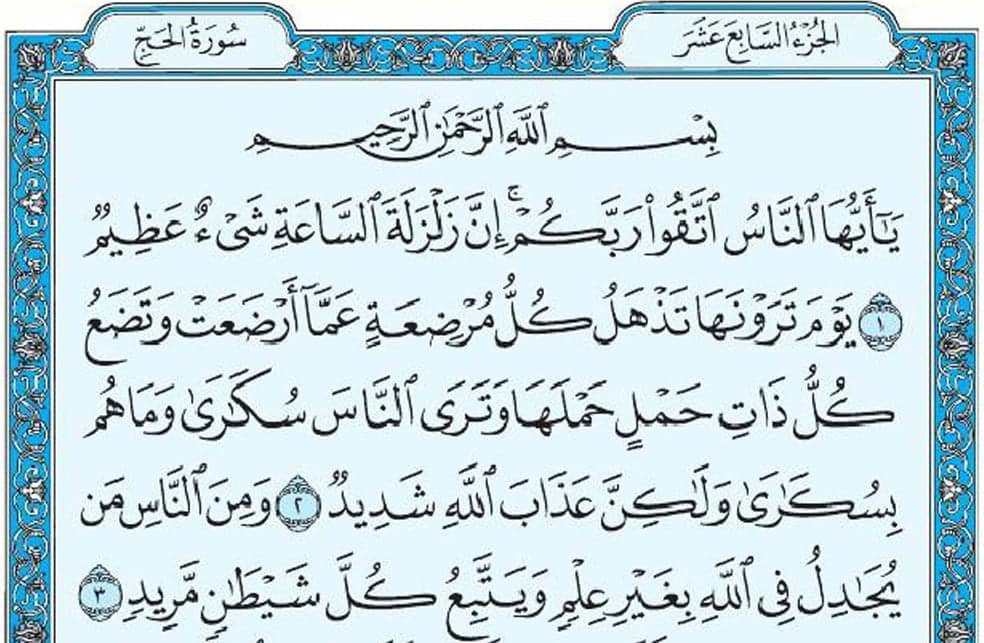 الجُزْءُ السَّابِعَ عَشَرَ
سُورَةُ الحَجِّ
بِسْمِ ٱللَّهِ ٱلرَّحْمَٰنِ ٱلرَّحِيمِ
يَٰٓأَيُّهَا ٱلنَّاسُ ٱتَّقُوا۟ رَبَّكُمْ ۚ إِنَّ زَلْزَلَةَ ٱلسَّاعَةِ شَىْءٌ عَظِيمٌ
١ يَوْمَ تَرَوْنَهَا تَذْهَلُ كُلُّ مُرْضِعَةٍ عَمَّآ أَرْضَعَتْ وَتَضَعُ
كُلُّ ذَاتِ حَمْلٍ حَمْلَهَا وَتَرَى ٱلنَّاسَ سُكَٰرَىٰ وَمَا هُم
بِسُكَٰرَىٰ وَلَٰكِنَّ عَذَابَ ٱللَّهِ شَدِيدٌ ٢ وَمِنَ ٱلنَّاسِ مَن
يُجَٰدِلُ فِى ٱللَّهِ بِغَيْرِ عِلْمٍ وَيَتَّبِعُ كُلَّ شَيْطَٰنٍ مَّرِيدٍ ٣